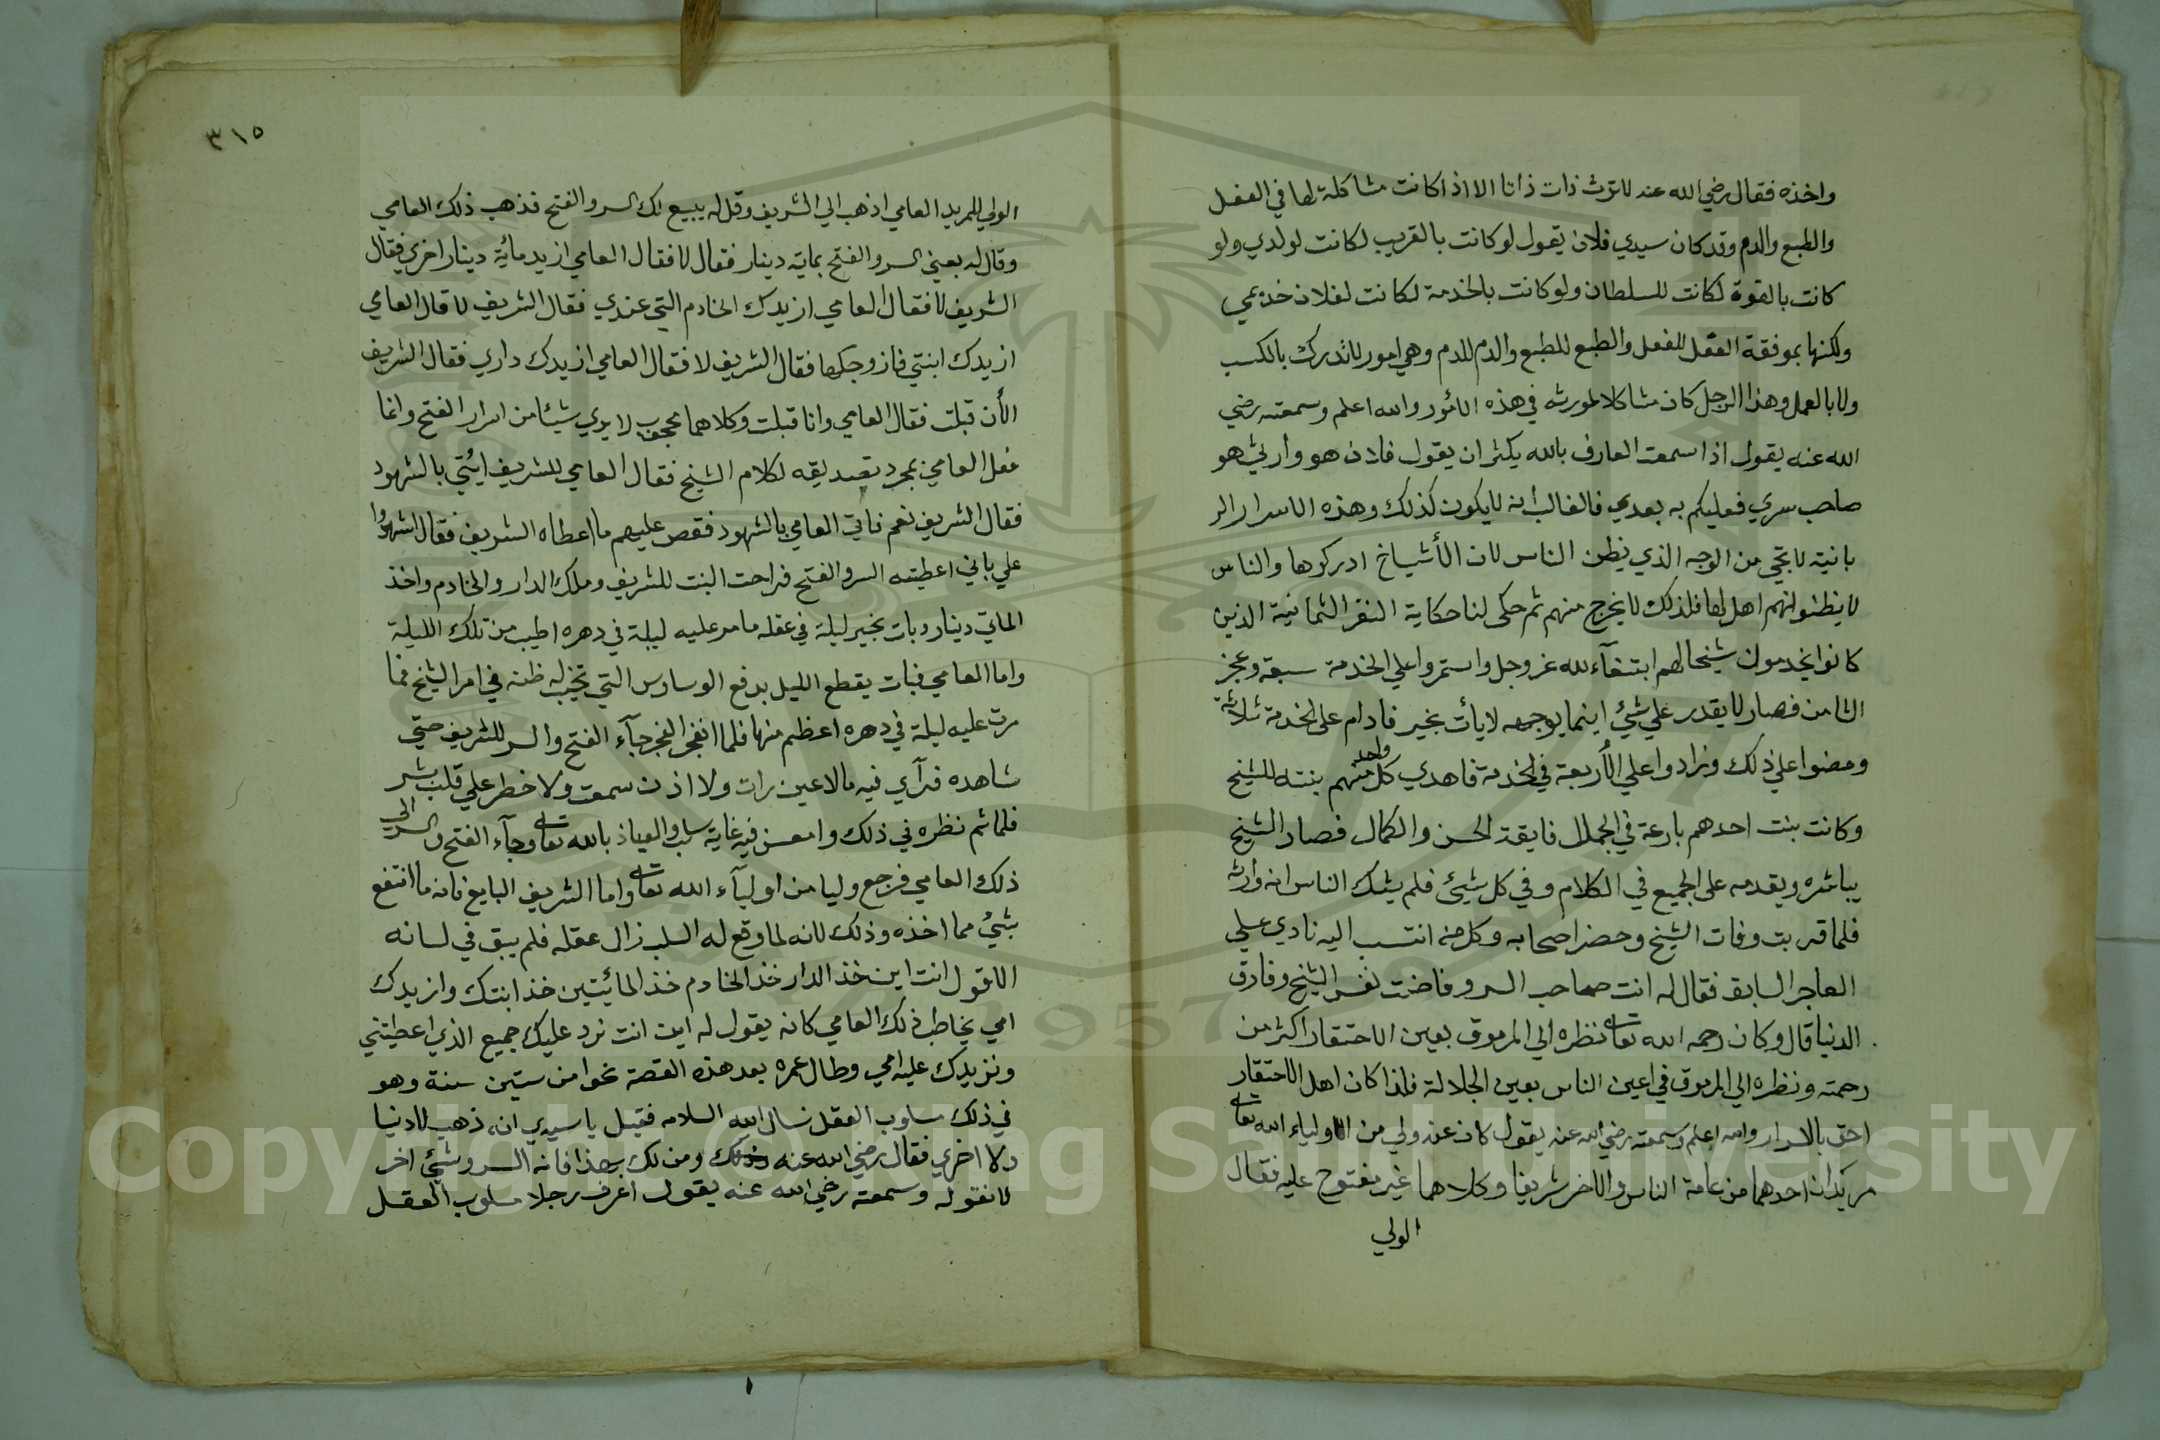 واخذه فقال رضي الله عنه لا ترث ذات ذاتا الا اذا كانت مشاكلة لها في العقل
والطبع والدم وقد كان سيدي فلان يقول لو كانت بالقريب لكانت لولدي ولو
كانت بالقوة لكانت للسلطان ولو كانت بالخدمة لكانت لفلان خديمي
ولكنها بموفقة العقل للعقل والطبع للطبع والدم للدم وهي امور لا تدرك بالكسب
ولا بالعمل وهذا الرجل كان مشاكلا لمورثه في هذه الامور والله اعلم وسمعته رضي
الله عنه يقول اذا سمعت العارف بالله يكثر ان يقول فلان هو وارثي هو
صاحب سري فعليكم به بعدي فالغالب أنه لا يكون كذلك وهذه الاسرار الر
بانية لا تجي من الوجه الذي يظن الناس لان الأشياخ ادركوها والناس
لا يظنو انهم اهل لها فلذلك لا يخرج منهم ثم حكى لنا حكاية النفر الثمانية الذين
كانوا يخدمون شيخا لهم ابتغآء لله عز وجل واستمروا علي الخدمة سبعة وعجز
الثامن فصار لا يقدر علي شئ اينما يوجهه لا يأت بخير فادام على الخدمة ثلاثة
ومضوا علي ذلك وزادوا علي الأربعة في الخدمة فاهدي كل واحد منهم بنته للشيخ
وكانت بنت احدهم بارعة في الجمال فايقة الحسن والكمال فصار الشيخ
يباشره ويقدمه على الجميع في الكلام وفي كل شيئ فلم يشك الناس انه وارثه
فلما قربت وفات الشيخ وحضر اصحابه وكل من انتسب اليه نادي علي
العاجز السابق فقال له انت صاحب السر وفاضت نفس الشيخ وفارق
الدنيا قال وكان رحمه الله تعالى نظره الي المرموق بعين الاحتقار اكثر من
رحمته ونظره الي المرموق في اعين الناس بعين الجلالة فلذا كان اهل الاحتقار
احق بالاسرار والله اعلم وسمعته رضي الله عنه يقول كان عند ولي من الاولياء الله تعالى
مريدان احدهما من عامة الناس والاخر شريفا وكلاهما غير مفتوح عليه فقال
الولي
٣١٥
الولي للمريد العامي اذهب الي الشريف وقل له يبيع لك السر والفتح فذهب ذلك العامي
وقال له بعني السر والفتح بماية دينار فقال لا فقال العامي ازيد مائة دينار اخري فقال
الشريف لا فقال العامي ازيدك الخادم التي عندي فقال الشريف لا قال العامي
ازيدك ابنتي فازوجكها فقال الشريف لا فقال العامي ازيدك داري فقال الشريف
الأن قبلت فقال العامي وانا قبلت وكلاهما محجوب لا يري شيئا من اسرار الفتح وانما
فعل العامي بمجرد تصديقه لكلام الشيخ فقال العامي للشريف ايئتي بالشهود
فقال الشريف نعم فاتي العامي بالشهود فقص عليهم ما اعطاه الشريف فقال اشهدوا
علي باني اعطيته السر والفتح فراحت البنت للشريف وملك الدار والخادم واخذ
المايتي دينار وبات بخير ليلة في عقله ما مر عليه ليلة في دهره اطيب من تلك الليلة
واما العامي فبات يقطع الليل بدفع الوساوس التي تخيب له ظنه في امر الشيخ فما
مرت عليه ليلة في دهره اعظم منها فلما انفجر الفجر جآء الفتح والسر للشريف حتي
شاهده فرآي فيه ما لا عين رات ولا اذن سمعت ولا خطر علي قلب بشر
فلما تم نظره في ذلك وامعن فيه غاية سلب والعياذ بالله تعالى وجآء الفتح والسر الي
ذلك العامي فرجع وليا من اوليآء الله تعالى واما الشريف البايع فانه ما انتفع
بشيئ مما اخذه وذلك لانه لما وقع له السلب زال عقله فلم يبق في لسانه
الا قول انت اين خذ الدار خذ الخادم خذ المائيتين خذ ابنتك وازيدك
امي يخاطب ذلك العامي كانه يقول له ايت انت نرد عليك جميع الذي اعطيتني
ونزيدك عليه امي وطال عمره بعد هذه القصة نحوا من ستين سنة وهو
في ذلك مسلوب العقل نسال الله السلامه فقيل يا سيدي اذن ذهب لا دنيا
ولا اخري فقال رضي الله عنه ومن لك بهذا فانه السر وشيئ اخر
لا نقوله وسمعته رضي الله عنه يقول اعرف رجلا مسلوب العقل
Copyright © King Saud University
1957